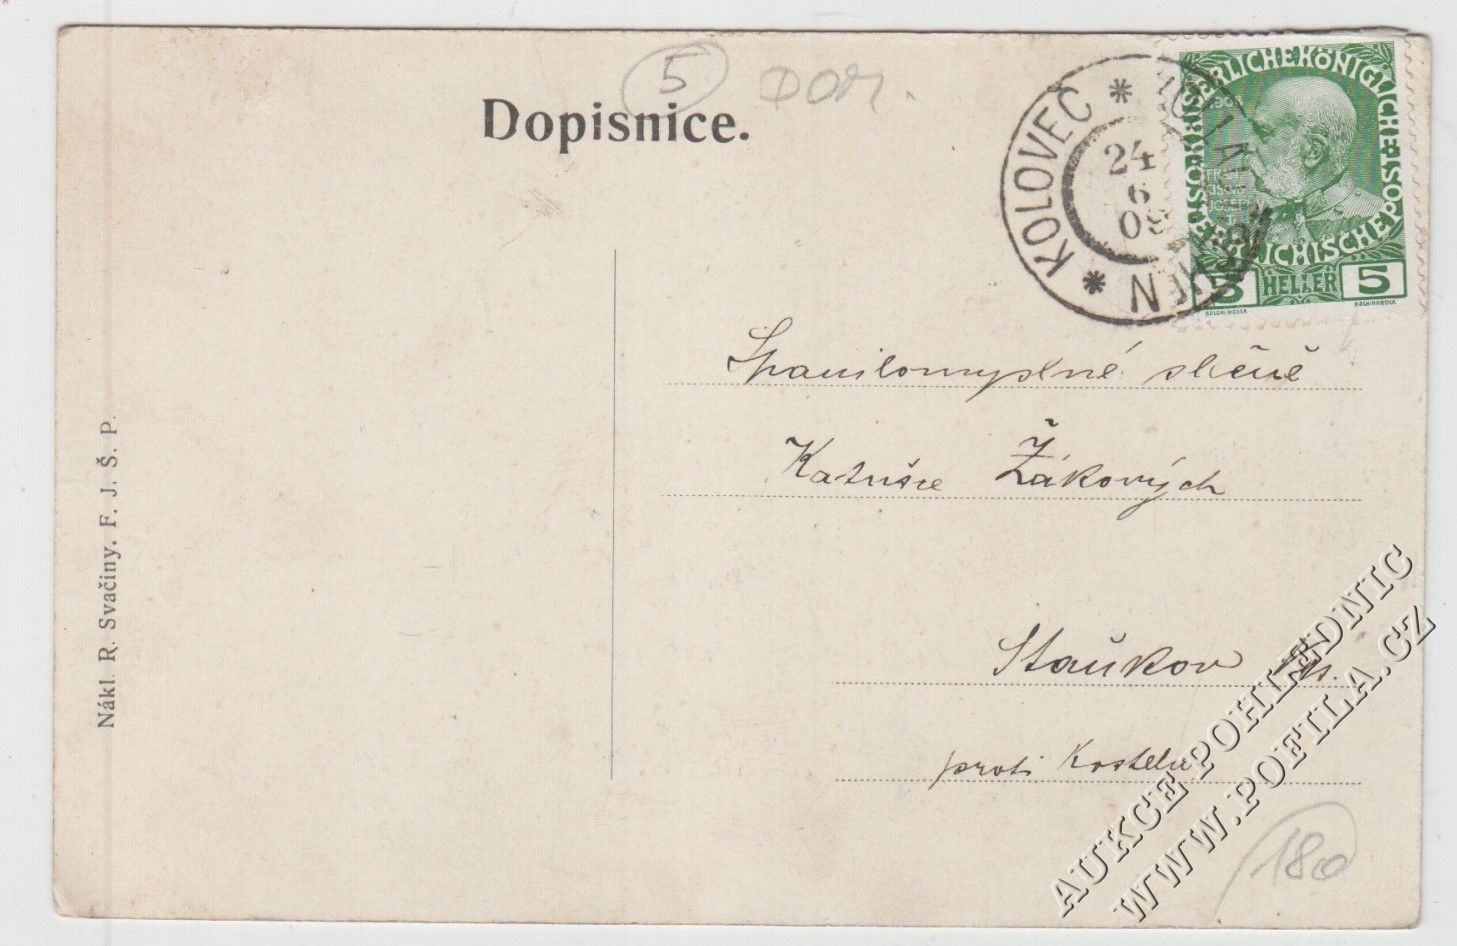 5 DOM.
Dopisnice.
* KOLOVEČ *
24
6
09
KAISERLICHE KÖNIGLICHE ÖSTERREICHISCHE POST
FRAN
JOSEPH
5 HELLER 5
KOLOM. MOSER
F. SCHIRNBÖCK
Spanilomyslné slečně
Katušce Žákových
Staňkov
proti Kostelu
180
Nákl. R. Svačiny. F. J. Š. P.
AUKCE POHLEDNIC
WWW.POFILA.CZ